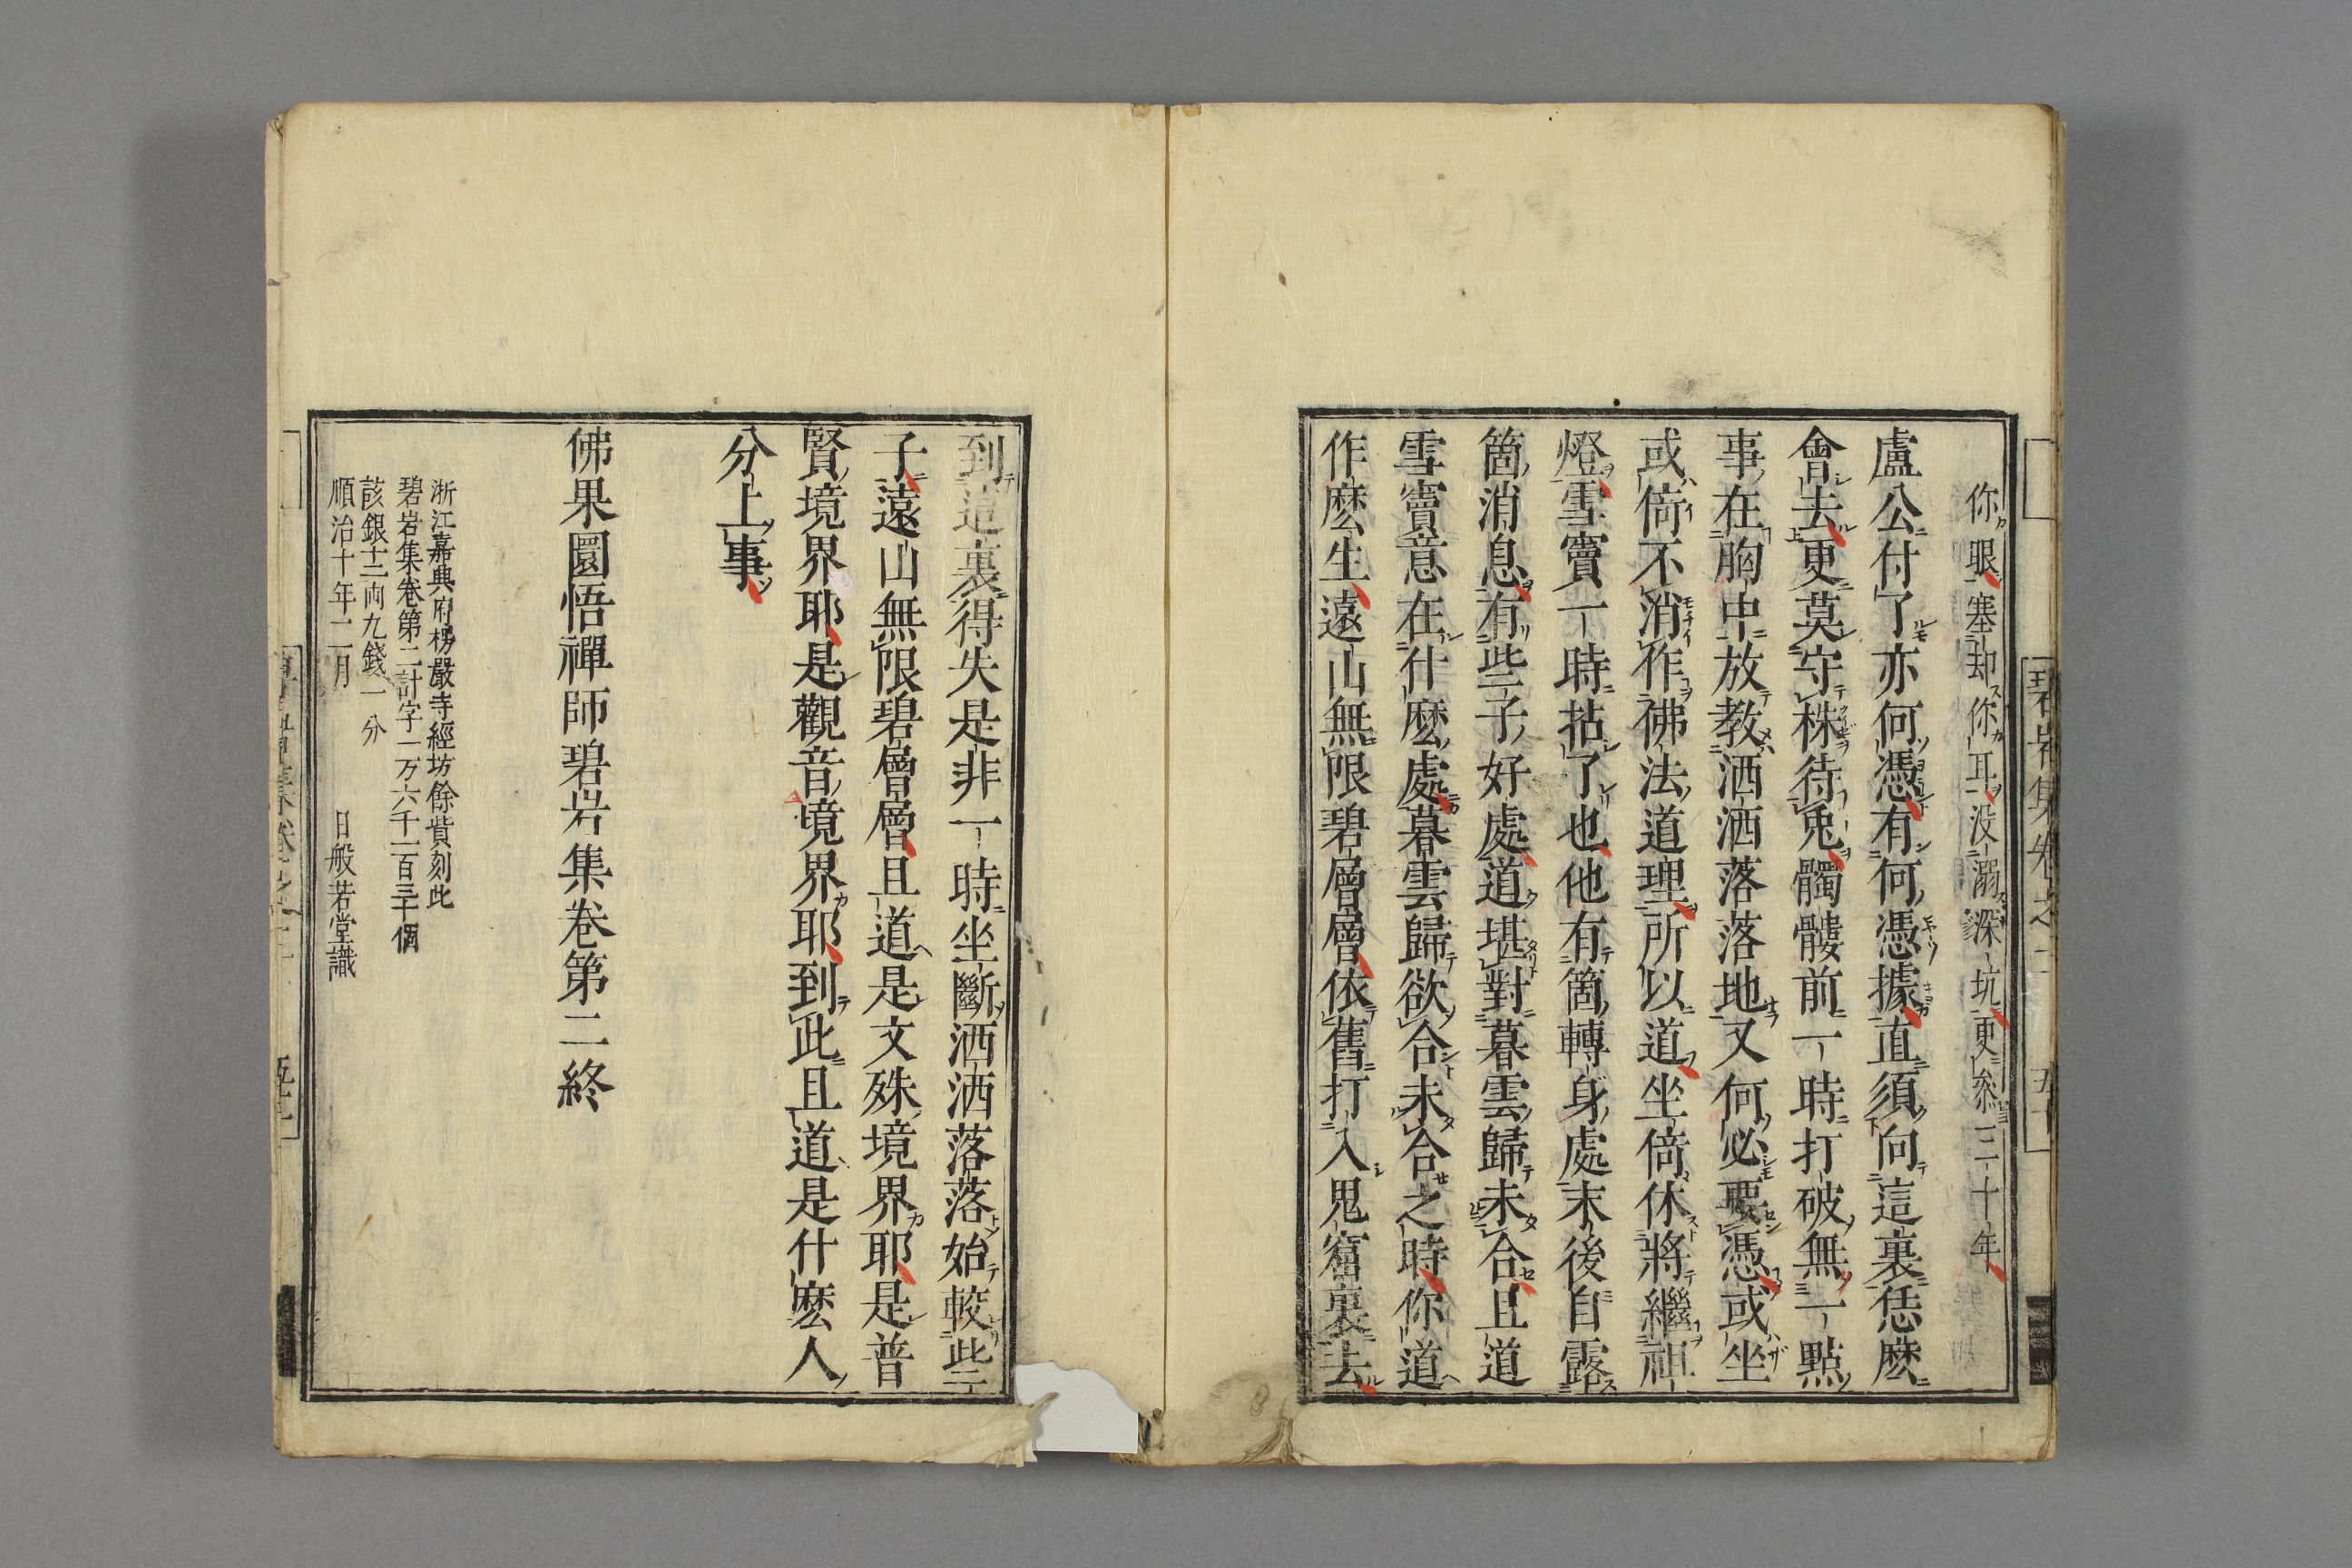 你眼塞却你耳没溺深坑更叅三十年
盧公付了亦何憑有何憑據直須向這裏恁麽
會去更莫守株待兎髑髏前一時打破無一點
事在胸中放教洒洒落落地又何必要憑或坐
或倚不消作彿法道理所以道坐倚休將繼祖
燈雪竇一時拈了也他有箇轉身處末後自露
箇消息有些子好處道堪對暮雲歸未合且道
雪竇意在什麽處暮雲歸欲合未合之時你道
作麽生遠山無限碧層層依舊打入鬼窟裏去
到這裏得失是非一時坐斷洒洒落落始較些
子遠山無限碧層層且道是文殊境界耶是普
賢境界耶是觀音境界耶到此且道是什麽人
分上事
佛果圜悟禪師碧岩集卷第二終
浙江嘉興府楞嚴寺經坊餘貲刻此
碧岩集卷第二計字一万六千一百三十個
該銀十二兩九錢一分
順治十年二月 日般若堂識